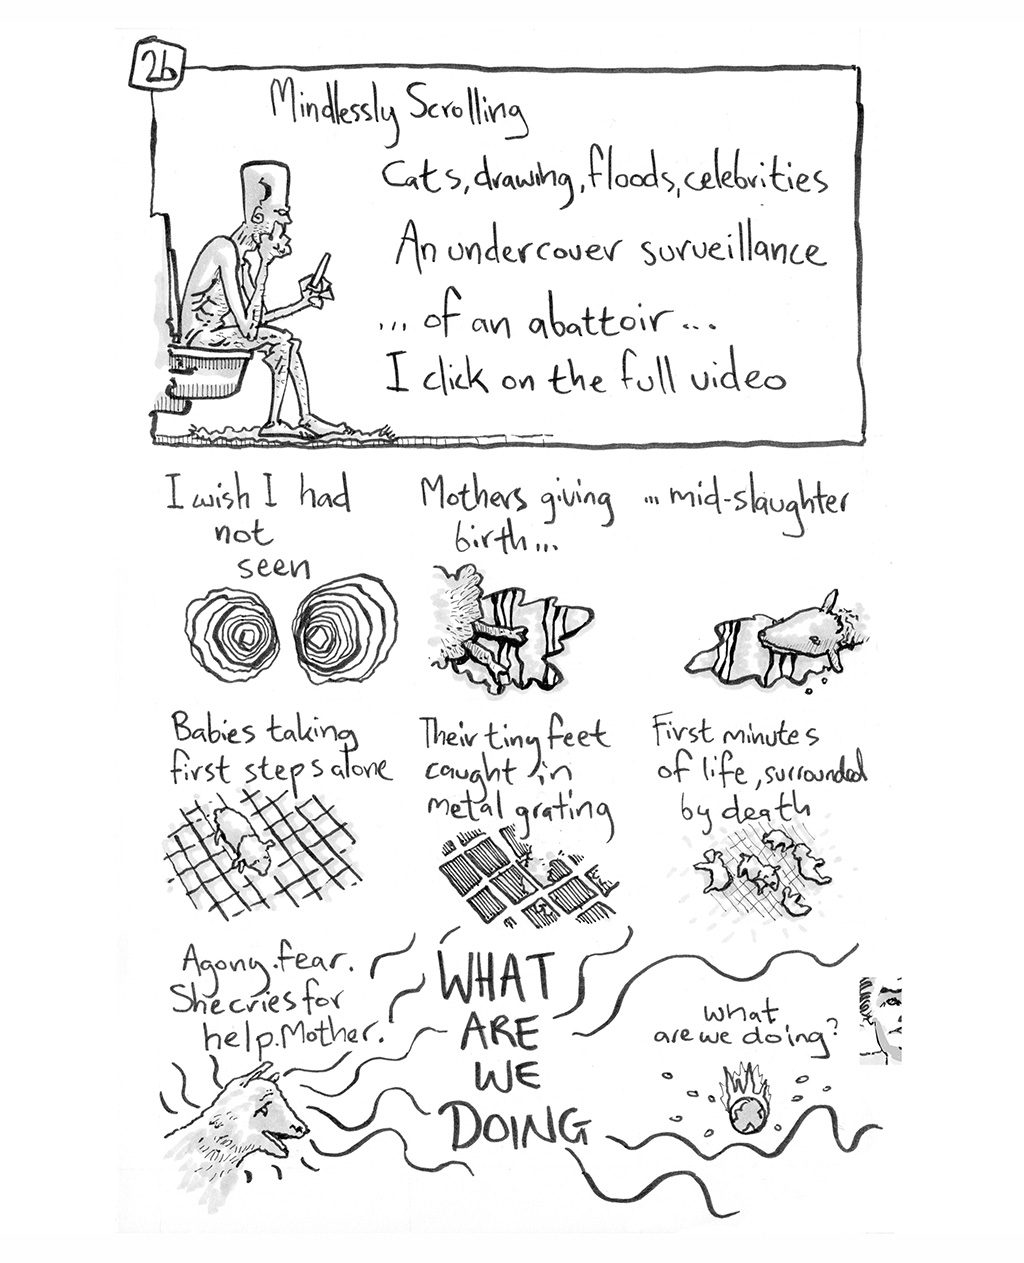 26
Mindlessly Scrolling
Cats, drawing, floods, celebrities
An undercover surveillance
... of an abattoir ...
I click on the full video
I wish I had
not
seen
Mothers giving
birth...
... mid-slaughter
Babies taking
first steps alone
Their tiny feet
caught in
metal grating
First minutes
of life, surrounded
by death
Agony. fear.
She cries for
help. Mother.
WHAT
ARE
WE
DOING
what
are we doing?